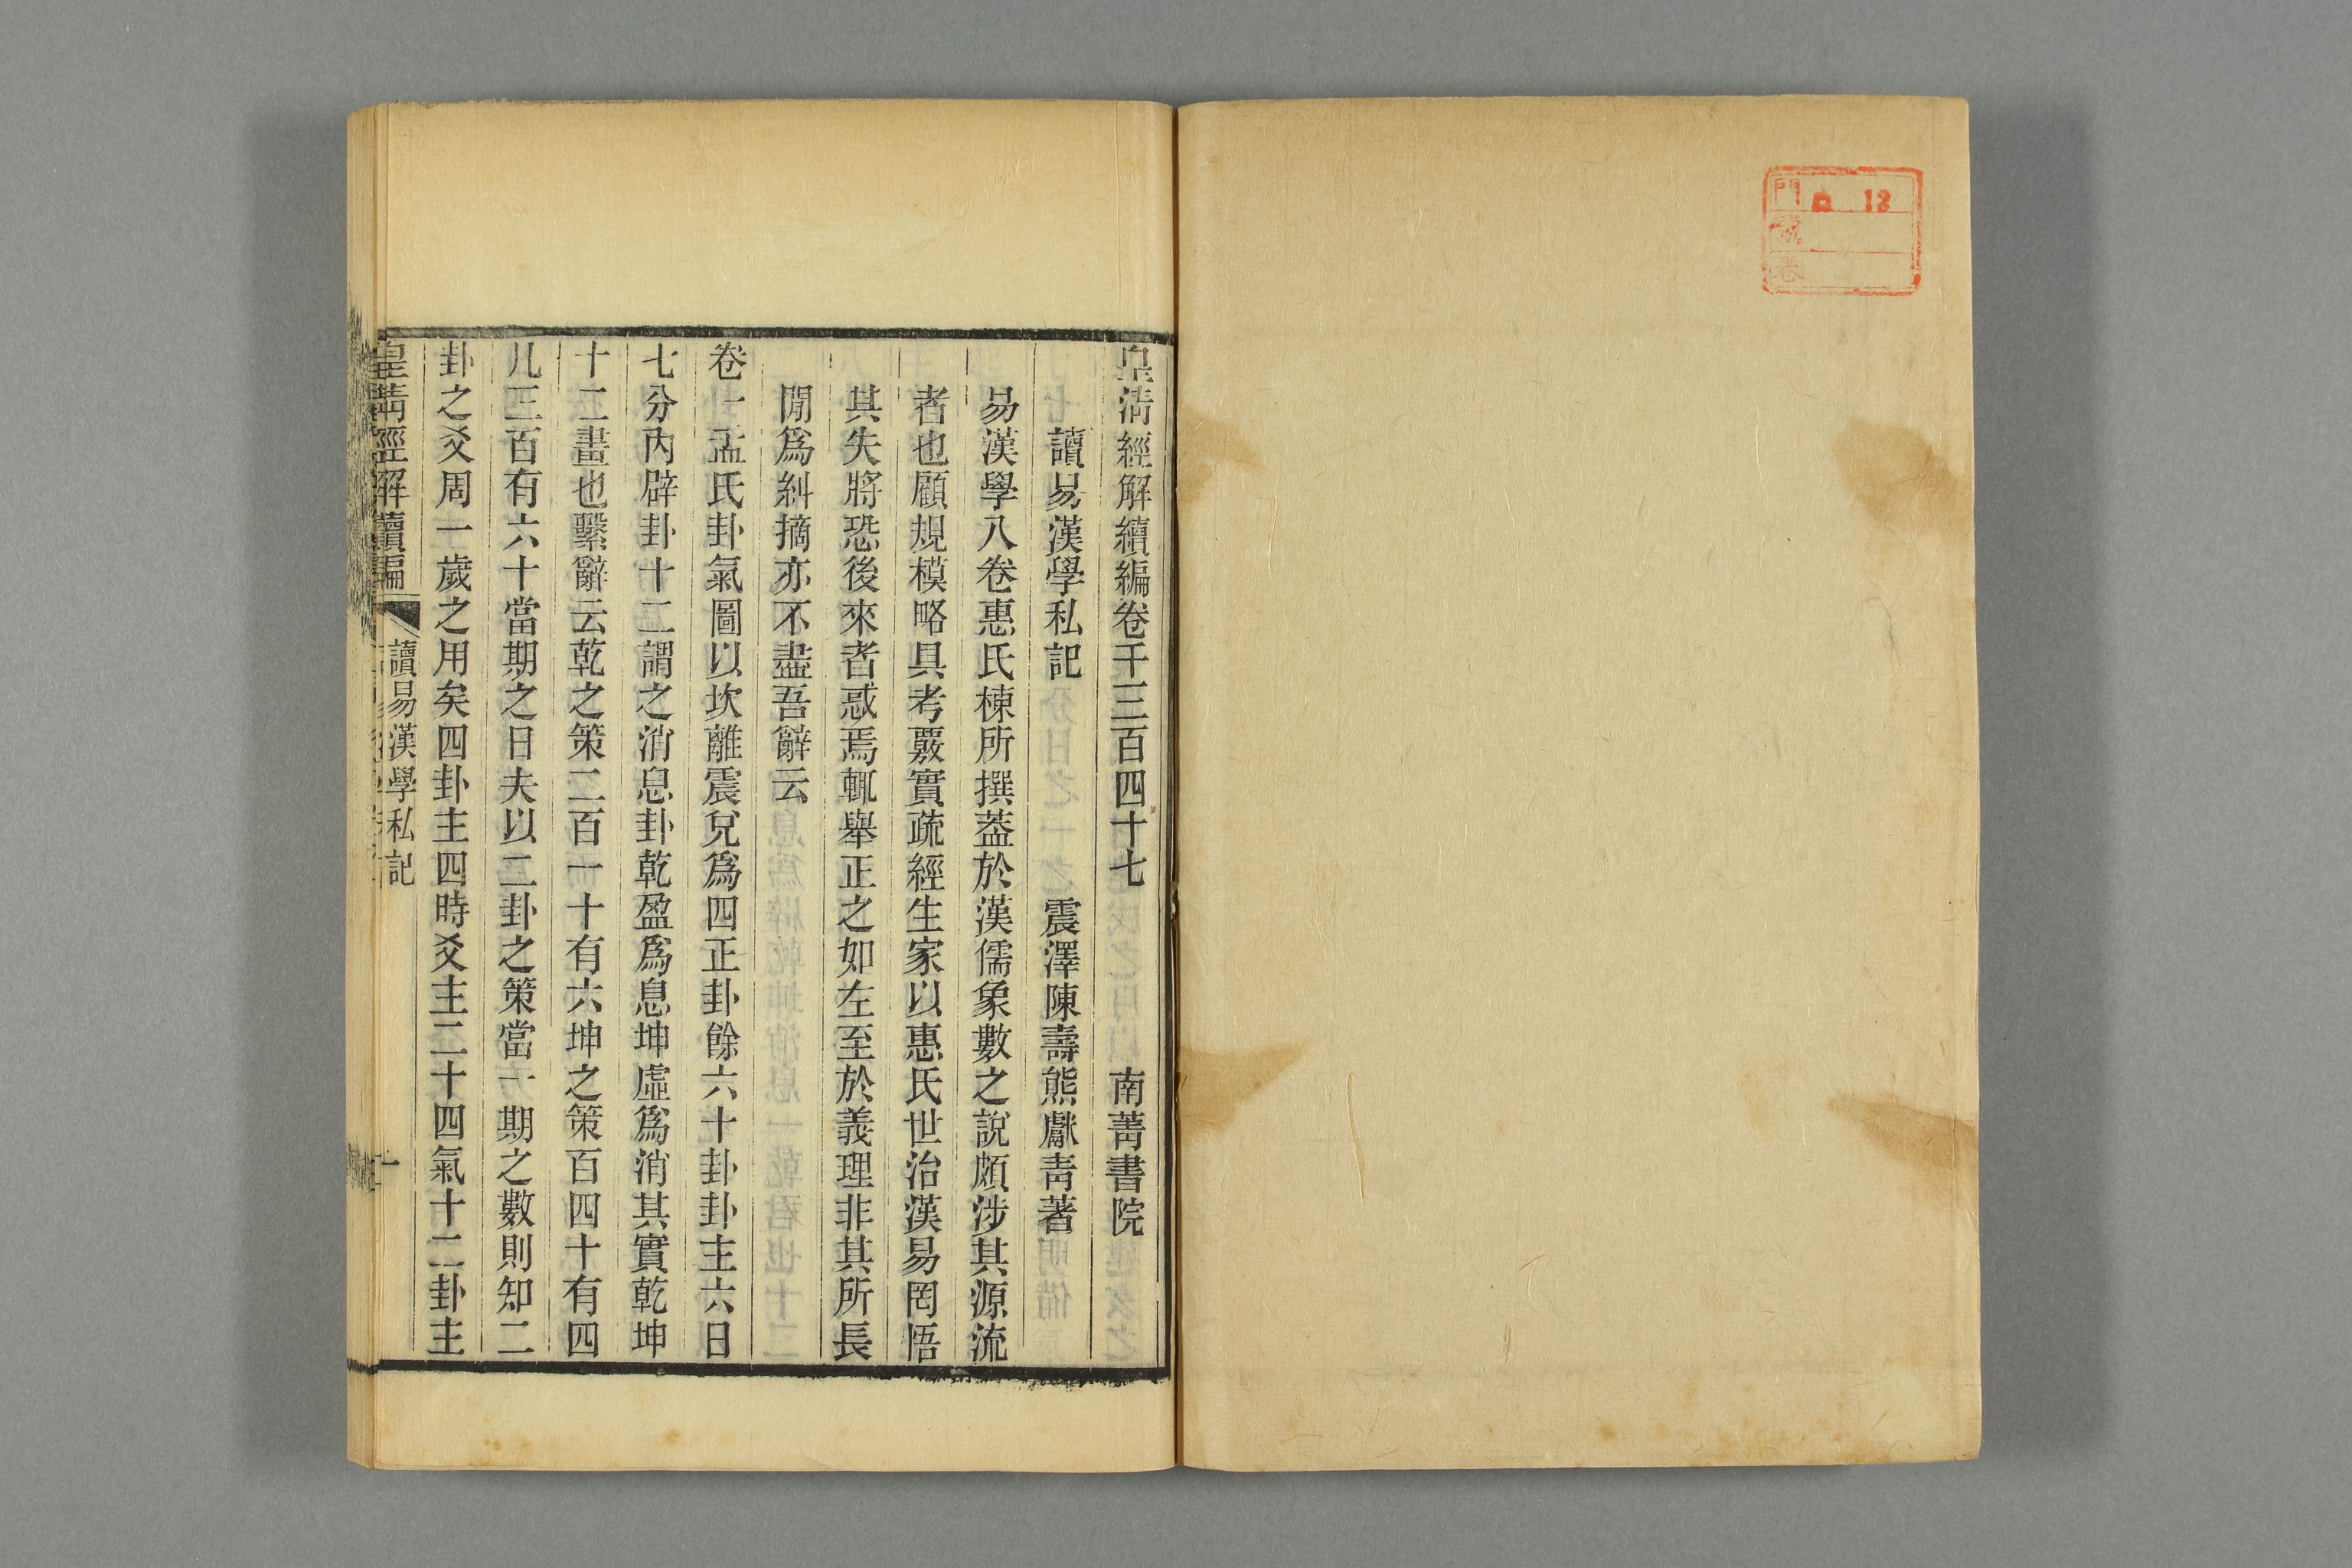 門 口 18
號
卷
皇淸經解續編卷千三百四十七 南菁書院
讀易漢學私記 震澤陳壽熊獻靑著
易漢學八卷惠氏棟所撰葢於漢儒象數之說頗涉其源流
者也顧規模略具考覈實疏經生家以惠氏世治漢易罔悟
其失將恐後來者惑焉輒舉正之如左至於義理非其所長
閒爲糾摘亦不盡吾辭云
卷一孟氏卦氣圖以坎離震兌爲四正卦餘六十卦卦主六日
七分內辟卦十二謂之消息卦乾盈爲息坤虛爲消其實乾坤
十二畫也繫辭云乾之策二百一十有六坤之策百四十有四
凡三百有六十當期之日夫以二卦之策當一期之數則知二
卦之爻周一歲之用矣四卦主四時爻主二十四氣十二卦主
皇淸經解續編 讀易漢學私記 一